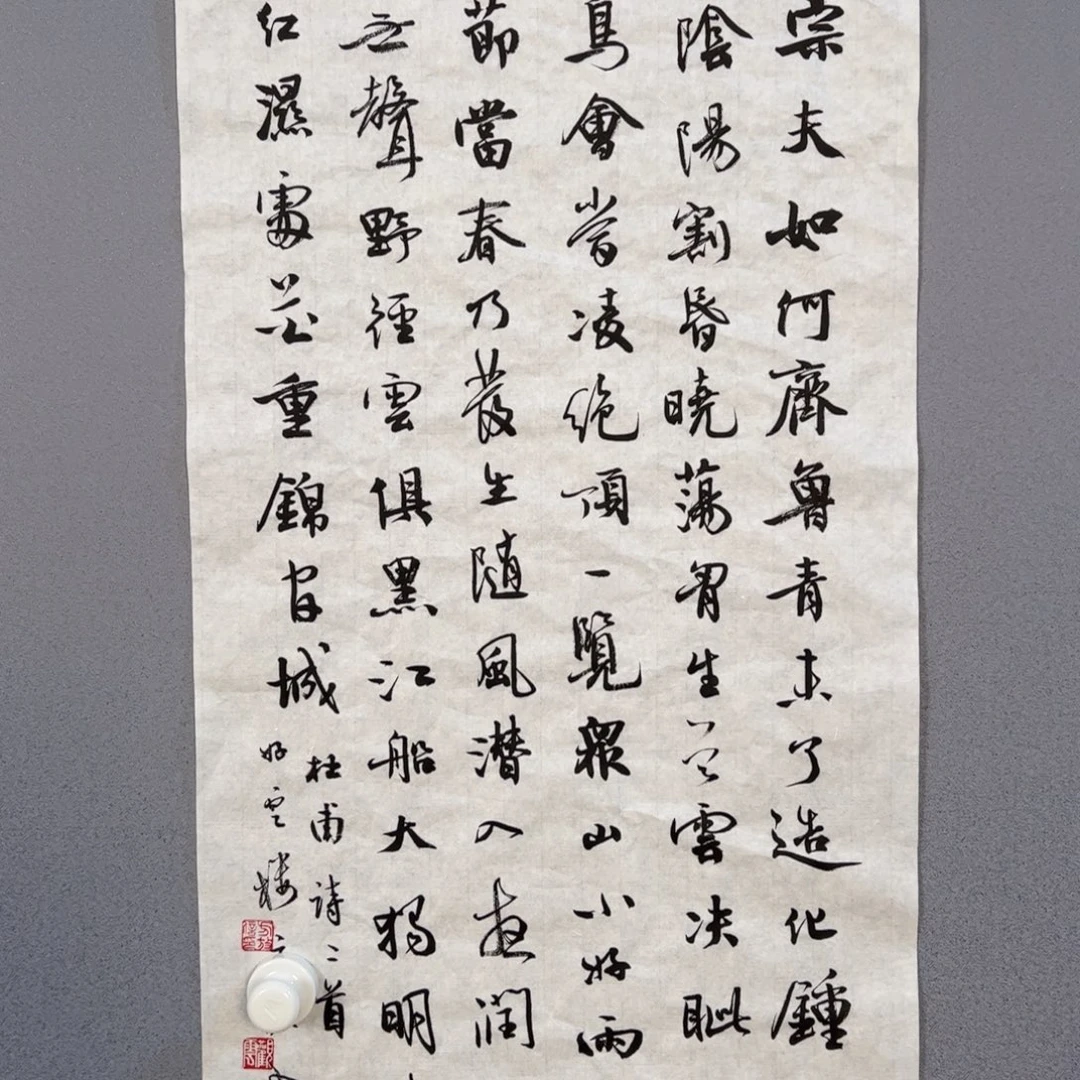 宗夫如何齊魯青未了造化鍾
陰陽割昏曉蕩胷生曾雲决眦
鳥會當凌絶頂一覽眾山小好雨
節當春乃發生隨風潜入夜潤
無聲野徑雲俱黑江船火獨明
紅濕處花重錦官城
杜甫詩二首
好雲樓